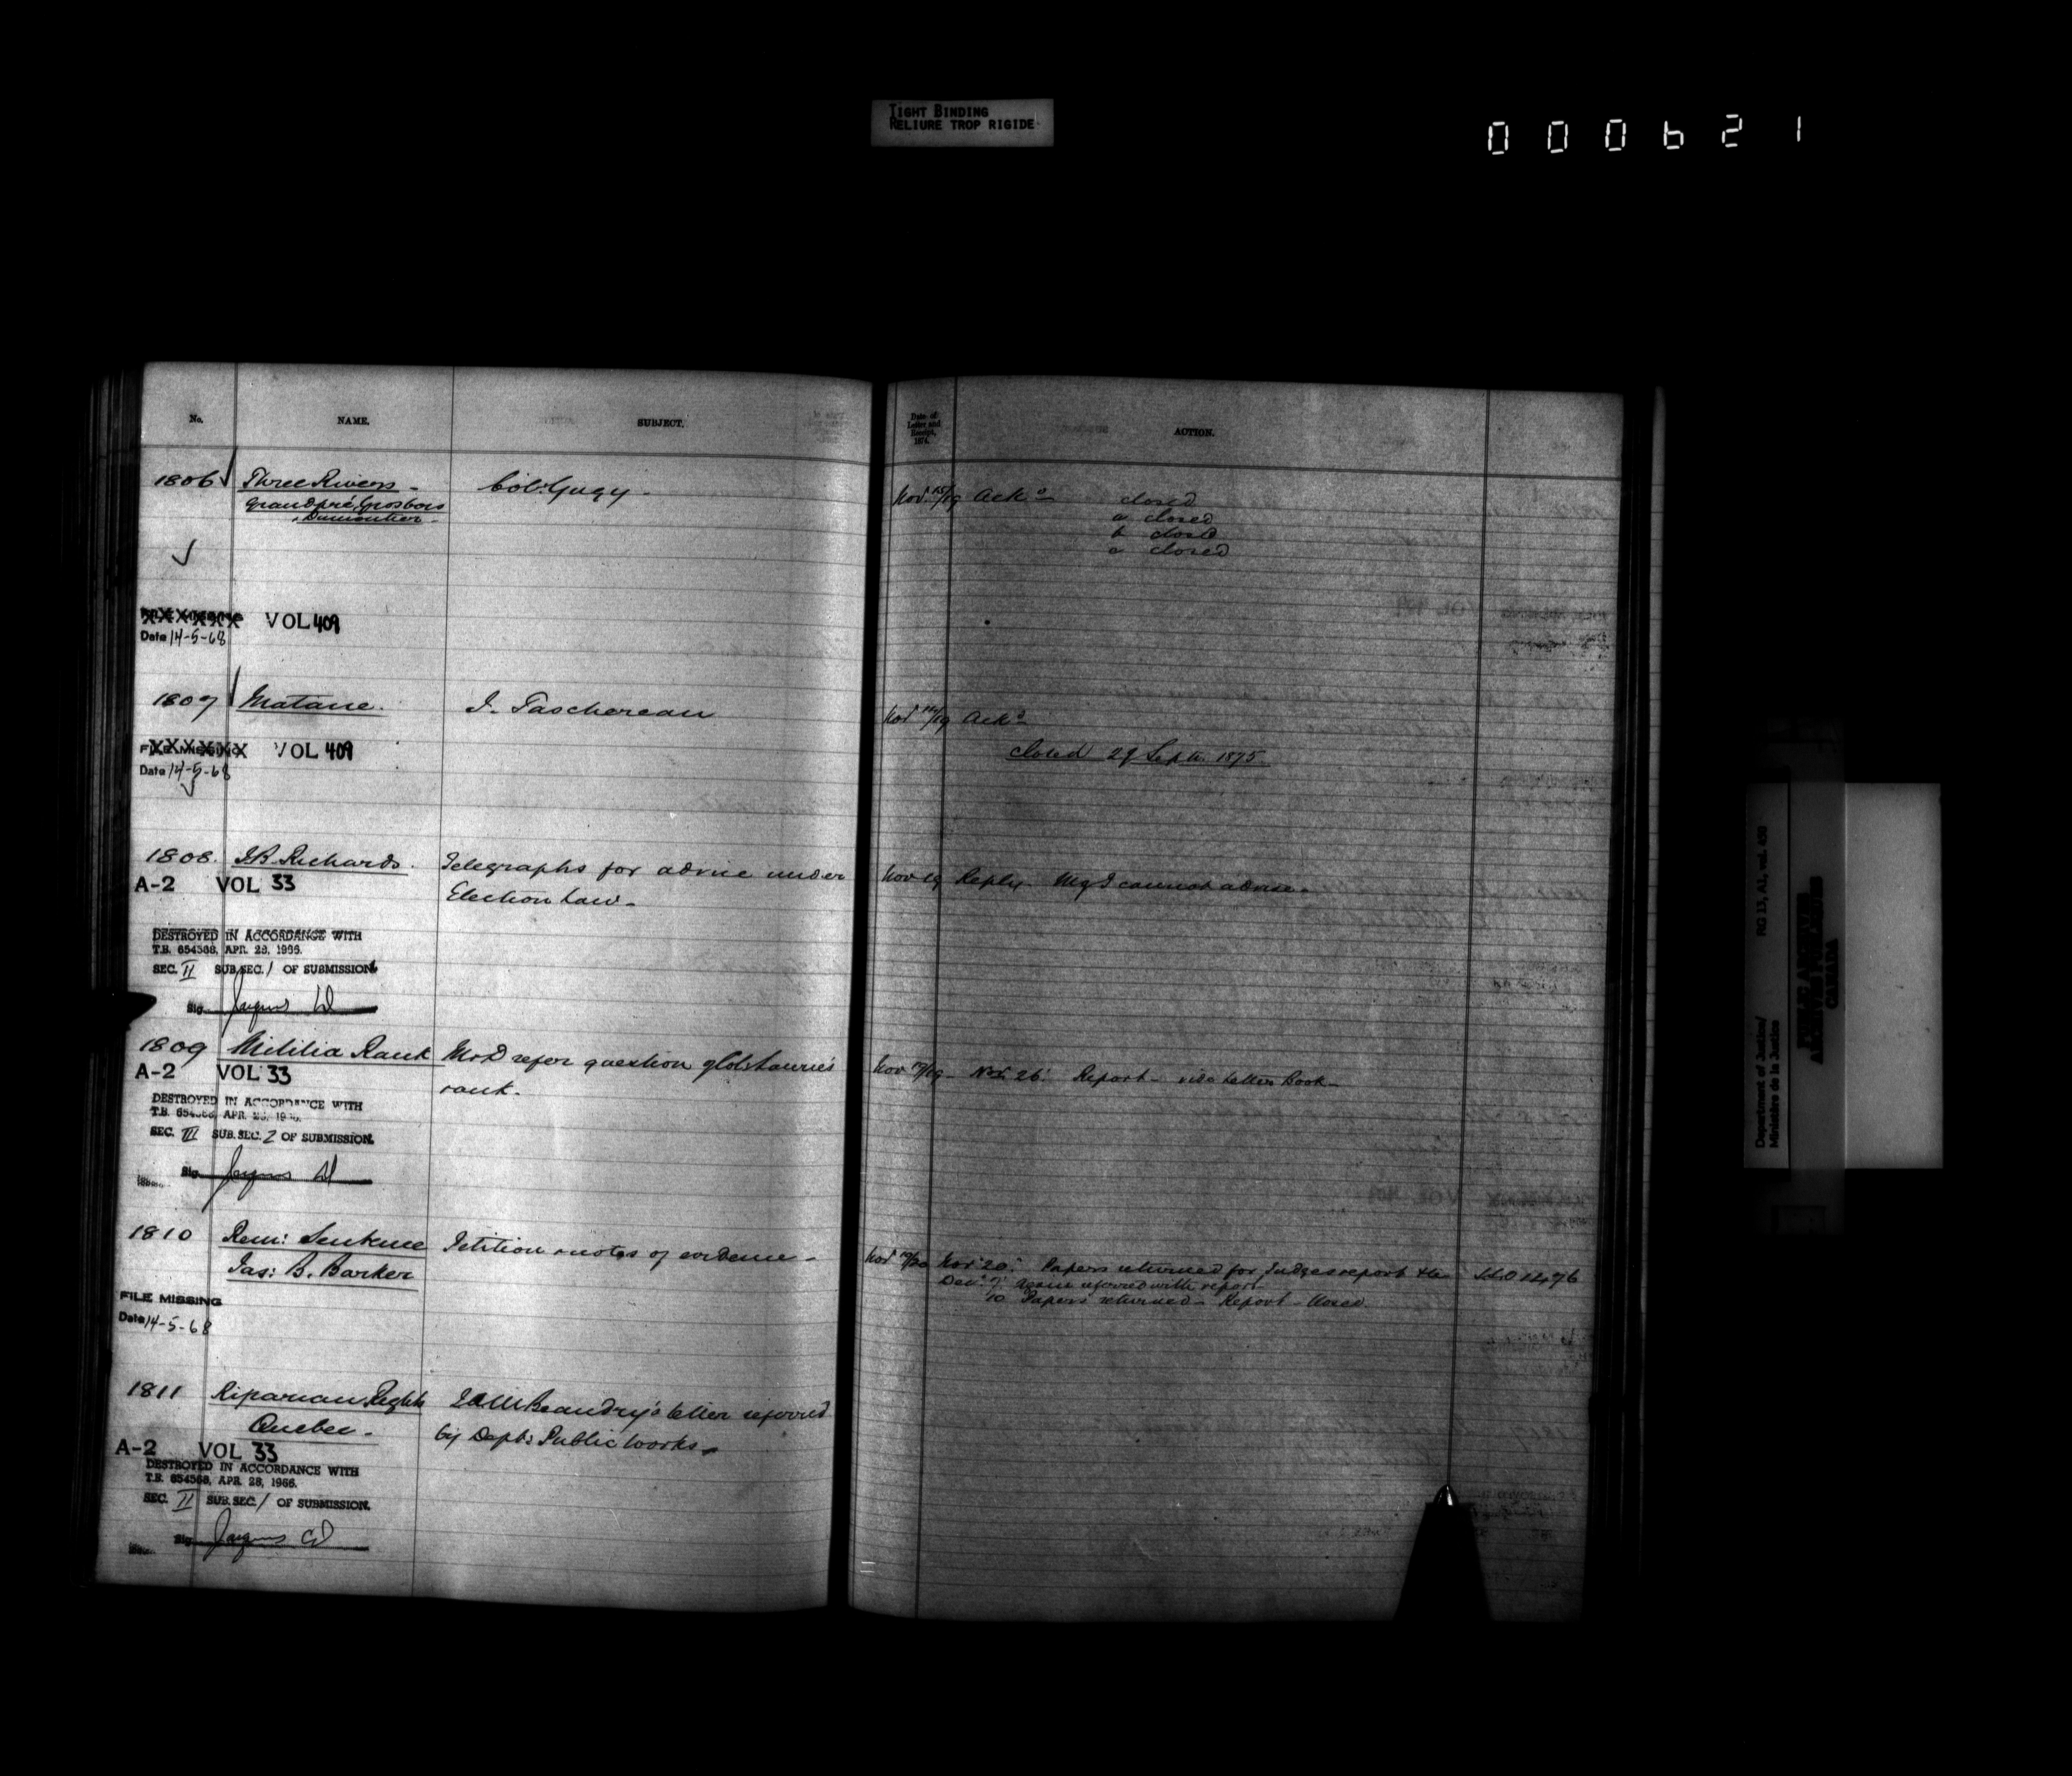 TIGHT BINDING
RELIURE TROP RIGIDE
000621
No. NAME. SUBJECT.
1806 Three Rivers - Col. Gugy -
Grandpré, Grosbois
& Dumontier -
VOL 409
Date 14-5-68
1807 Matane. J. Taschereau
FILE MISSING VOL 409
Date 14-5-68
1808. Richards. Telegraphs for advice under
A-2 VOL 33 Election Law -
DESTROYED IN ACCORDANCE WITH
T.B. 654568, APR. 28, 1966.
SEC. II SUB.SEC. 1 OF SUBMISSION.
Sig.
1809 Militia Rank refer question
A-2 VOL 33 rank.
DESTROYED IN ACCORDANCE WITH
T.B. APR.
SEC. III SUB.SEC. 2 OF SUBMISSION.
Sig.
1810 Rem: Sentence Petition & notes of evidence -
Jas: B. Barker
FILE MISSING
Date 14-5-68
1811 Riparian Rights Beaudry's letter referred
Quebec - by Dept: Public Works
A-2 VOL 33
DESTROYED IN ACCORDANCE WITH
T.B. 654568, APR. 28, 1966.
SEC. II SUB.SEC. 1 OF SUBMISSION.
Sig.
Date of
Letter and
Receipt,
1874.
ACTION.
Nov. 15/19 Ackd closed
a closed
b closed
c closed
Nov /19 Ackd
closed 29 Septr. 1875
Nov 19 Reply. I cannot advise -
Nov 17/19 - Nov. 26. Report - vide Letter Book -
Nov 19/20 Nov. 20. Papers returned for Judges report &c
Dec. 7. again referred with report
10 Papers returned - Report - closed
Department of Justice/
Ministère de la Justice
RG 13, A1, vol. 450
PUBLIC ARCHIVES
ARCHIVES PUBLIQUES
CANADA